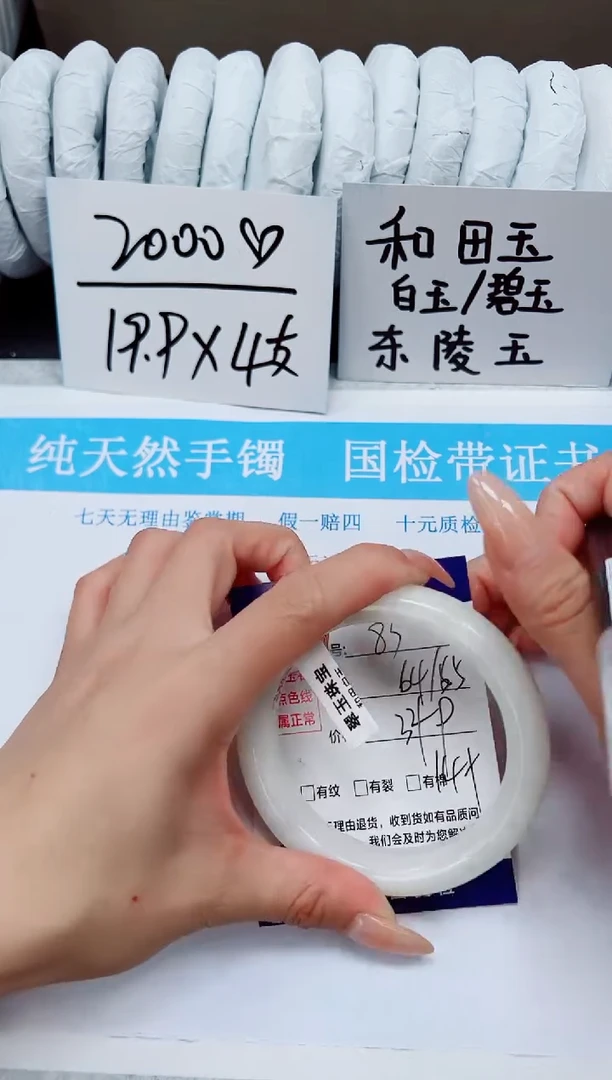 2000♡
19.9X4支
和田玉
白玉/碧玉
东陵玉
纯天然手镯 国检带证书
七天无理由鉴赏期 假一赔四 十元质检
号: 85
64/65
点色线
属正常
价
□有纹 □有裂 □有棉
理由退货，收到货如有品质问
我们会及时为您解